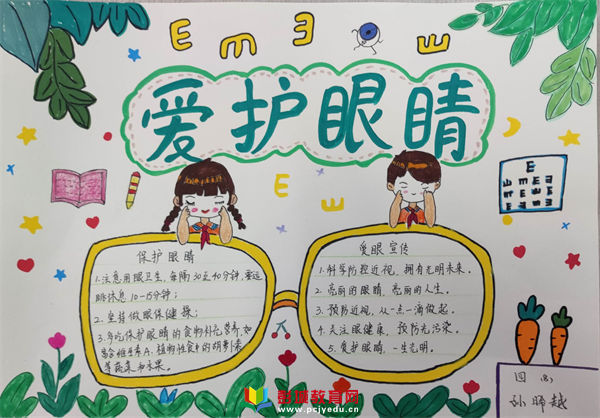 E m E E
爱护眼睛
E
E m
保护眼睛
1.注意用眼卫生,每隔30至40分钟,要远
眺休息10-15分钟;
2.坚持做眼保健操;
3.多吃保护眼睛的食物补充营养,如
富含维生素A、植物性食中的胡萝素
等蔬菜和水果。
爱眼宣传
1.科学防控近视,拥有光明未来。
2.亮丽的眼睛,亮丽的人生。
3.预防近视,从一点一滴做起。
4.关注眼健康,预防无污染。
5.爱护眼睛,一生光明。
E
孙晞越
彭城教育网
www.pcjyedu.cn